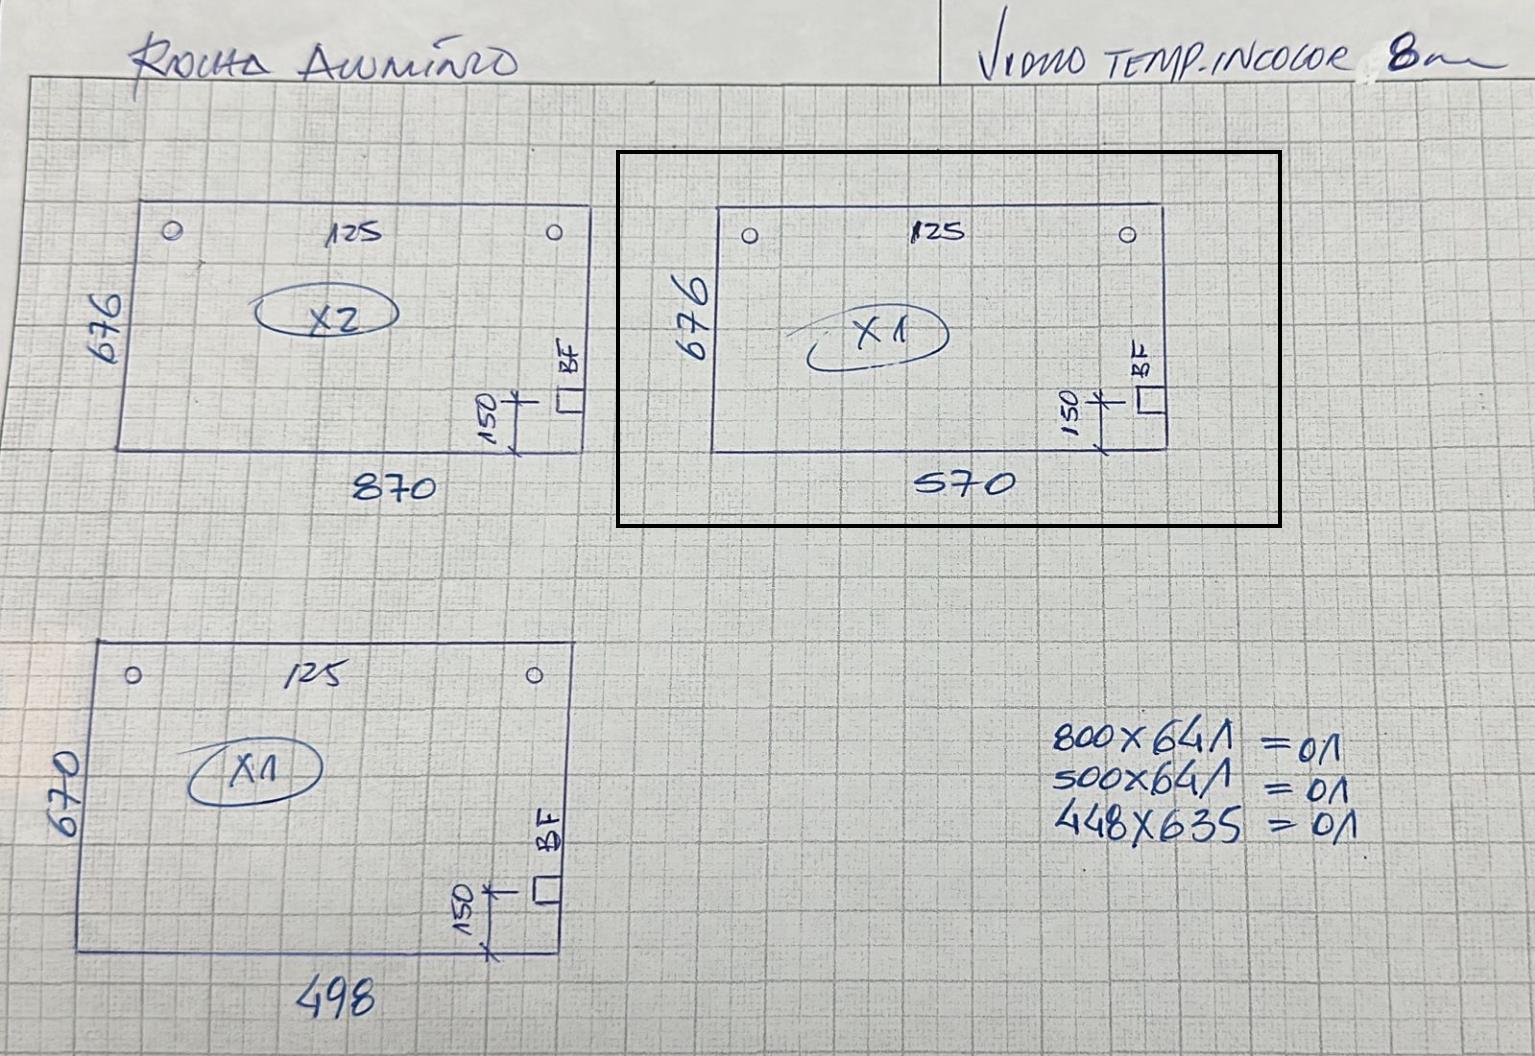 ROCHA ALUMÍNIO
VIDRO TEMP. INCOLOR 8mm
125
X2
676
BF
150
870
125
X1
676
BF
150
570
125
X1
670
BF
150
498
800X641 = 01
500X641 = 01
448X635 = 01